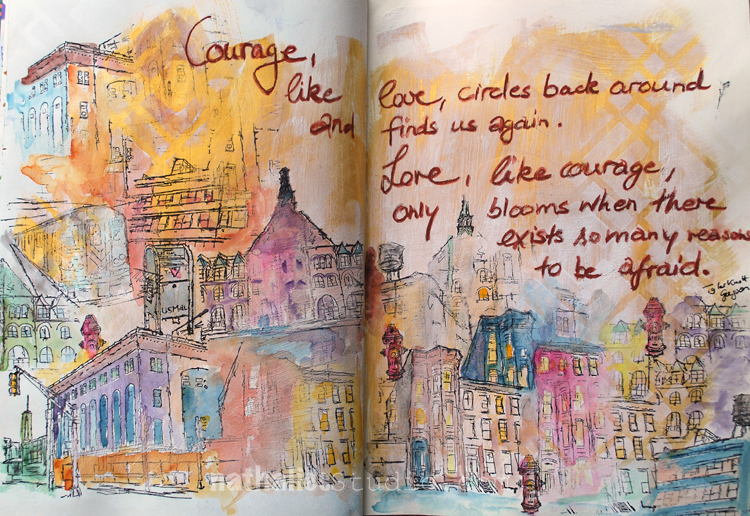 Courage,
like love, circles back around
and finds us again.
Love, like courage,
only blooms when there
exists so many reasons
to be afraid.
US Mail